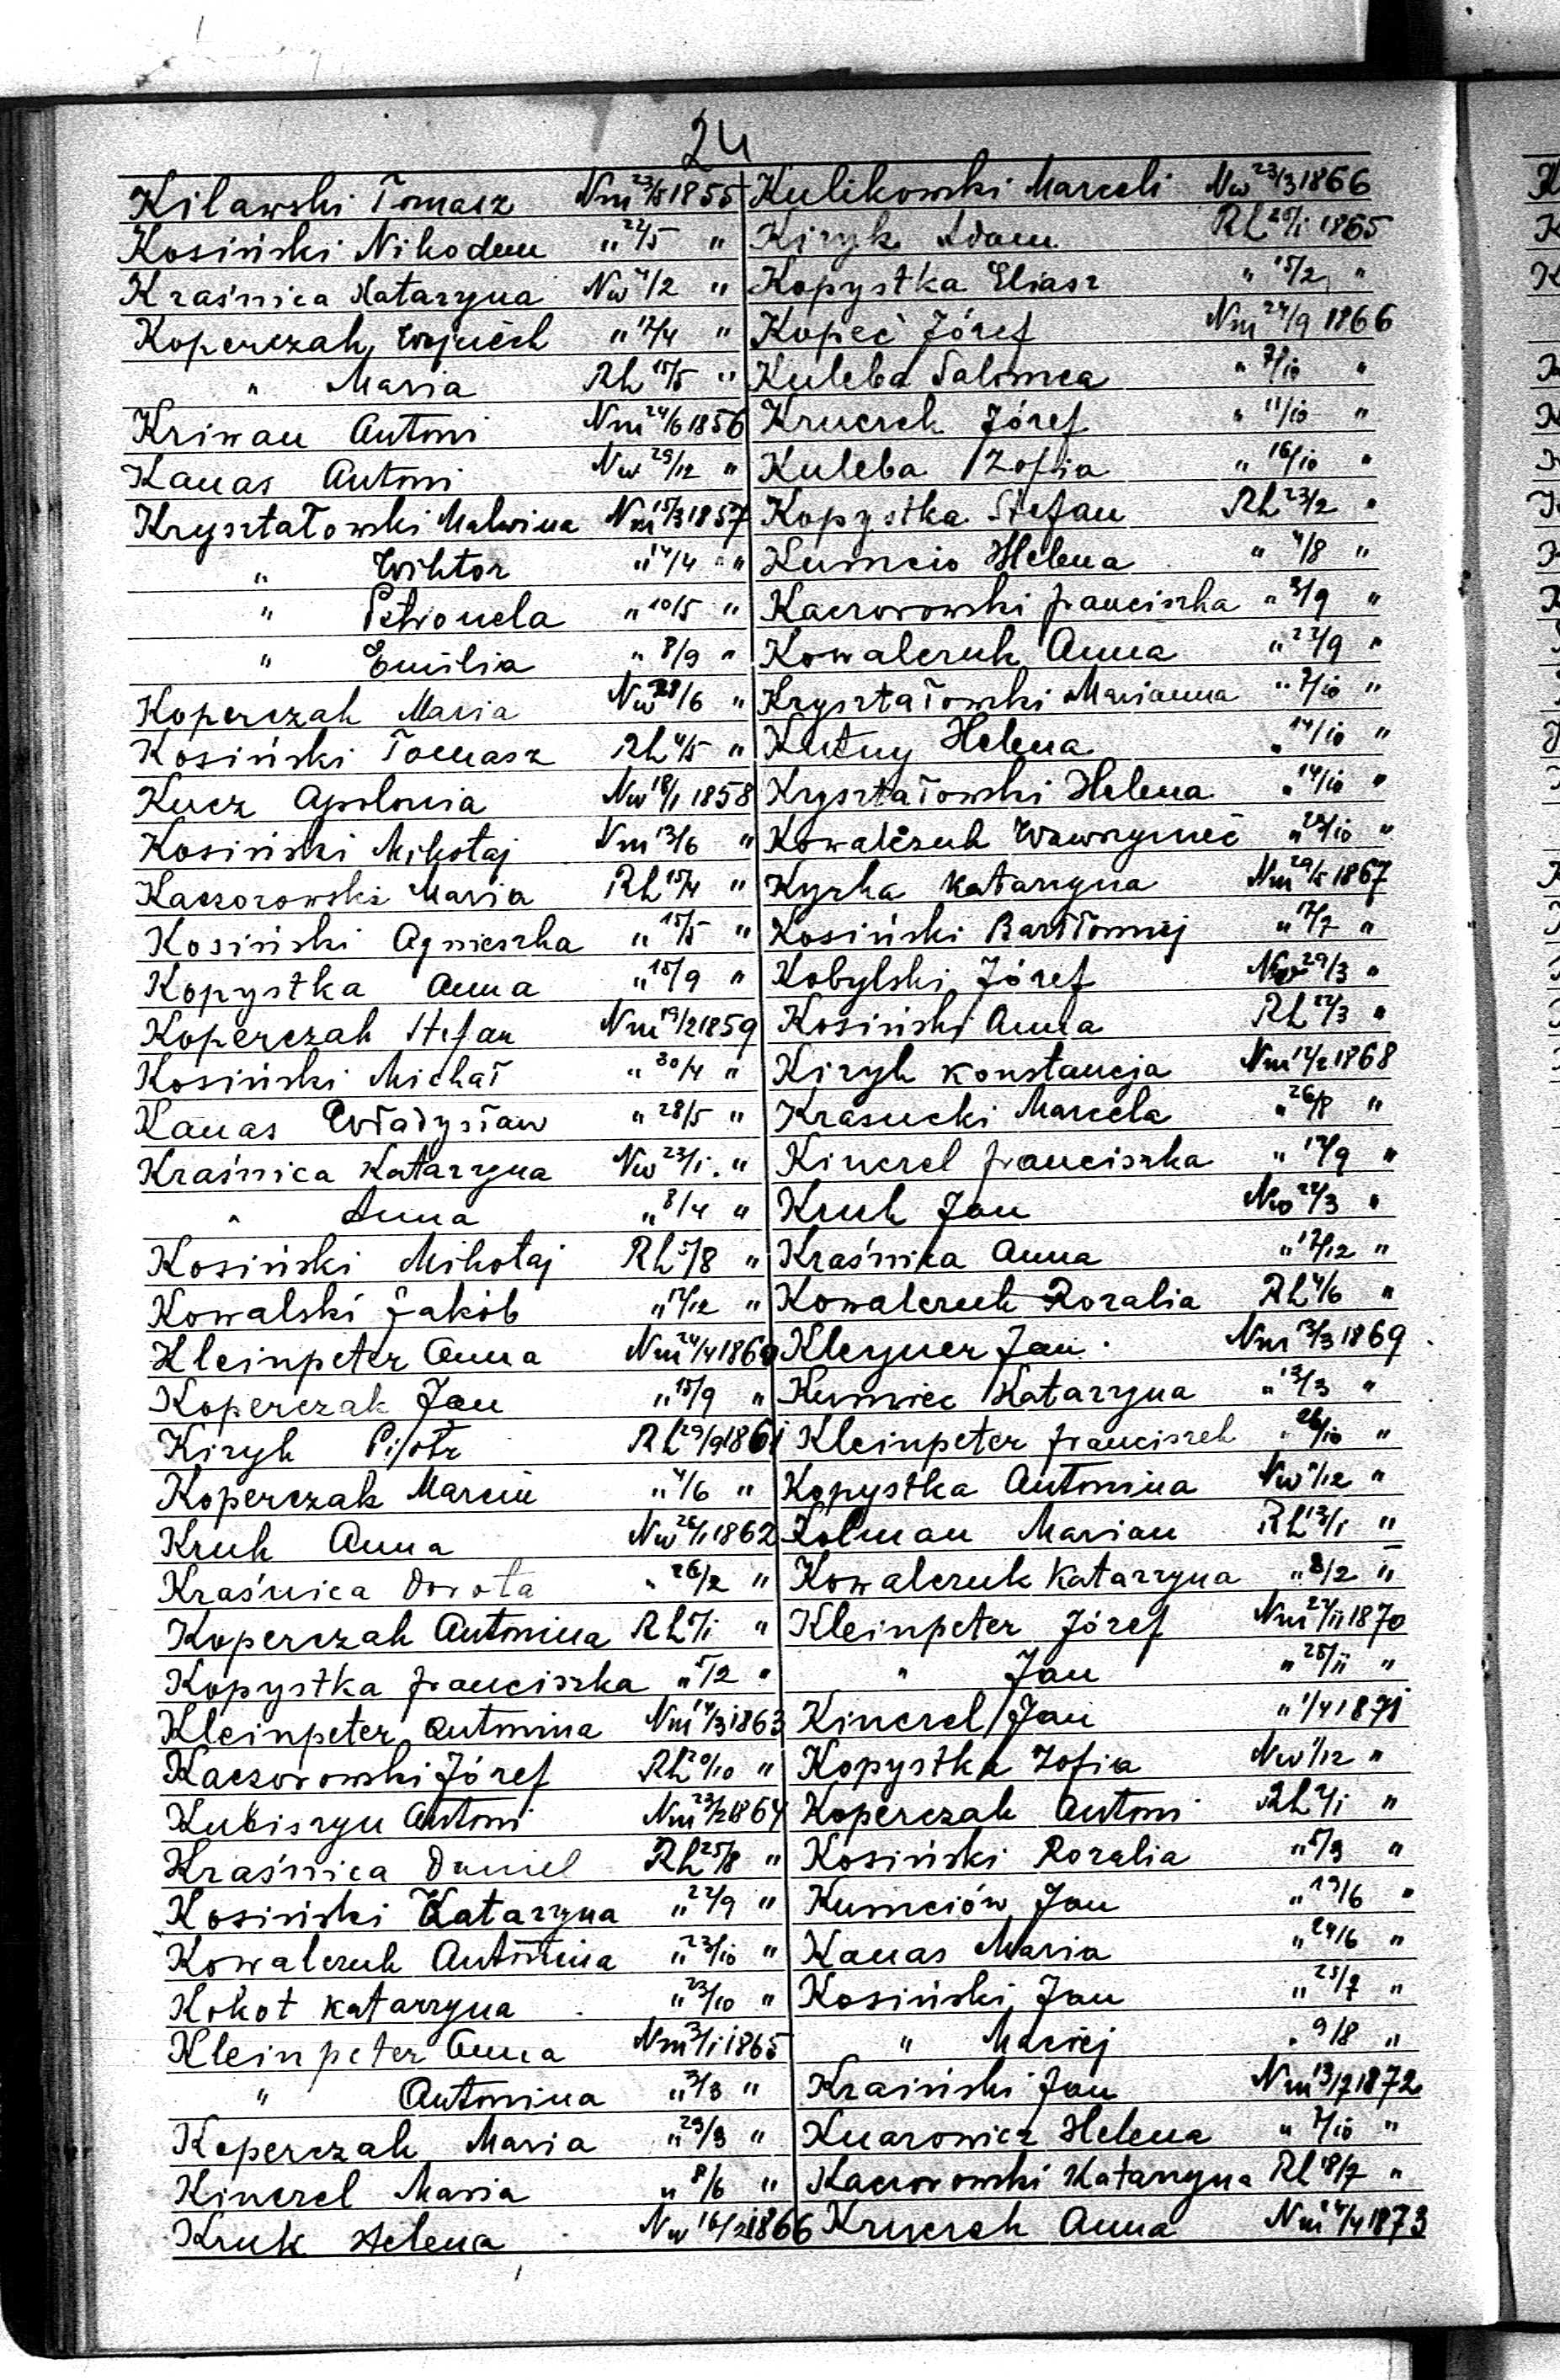 24
Kilawski Tomasz Nm 23/5 1855
Kosiński Nikodem " 22/5 "
Kraśnica Katarzyna Nw 4/2 "
Koperczak Wojciech " 17/4 "
" Maria Rh 15/5 "
Kriwan Antoni Nm 24/6 1856
Kanas Antoni Nw 29/12 "
Kryształowski Malwina Nm 15/3 1857
" Wiktor " 14/4 "
" Petronela " 10/5 "
" Emilia " 8/9 "
Koperczak Maria Nw /6 "
Kosiński Tomasz Rh 4/5 "
Kucz Apolonia Nw 18/1 1858
Kosiński Mikołaj Nm 13/6 "
Kaczorowski Maria Rh 15/4 "
Kosiński Agnieszka " 15/5 "
Kopystka Anna " 15/9 "
Koperczak Stefan Nm 19/2 1859
Kosiński Michał " 30/4 "
Kanas Władysław " 28/5 "
Kraśnica Katarzyna Nw 23/1 "
" Anna " 8/4 "
Kosiński Mikołaj Rh 5/8 "
Kowalski Jakób " 17/12 "
Kleinpeter Anna Nm 24/4 1860
Koperczak Jan " 15/9 "
Kiryk Piotr Rh 29/9 1861
Koperczak Marcin " 4/6 "
Kruk Anna Nw 26/1 1862
Kraśnica Dorota " 26/2 "
Koperczak Antonina Rh /1 "
Kopystka franciszka " 5/2 "
Kleinpeter Antonina Nm 14/3 1863
Kaczorowski Józef Rh 20/10 "
Kubiszyn Antoni Nm 23/2 1864
Kraśnica Daniel Rh 25/8 "
Kosiński Katarzyna " 22/9 "
Kowalczuk Antonina " 23/10 "
Kokot Katarzyna " 23/10 "
Kleinpeter Anna Nm /1 1865
" Antonina " 3/3 "
Koperczak Maria " 29/3 "
Kinczel Maria " 8/6 "
Kruk Helena Nw 16/2 1866
Kulikowski Marceli Nw 23/3 1866
Kiryk Adam Rh 26/1 1865
Kopystka Eliasz " 15/2 "
Kopeć Józef Nm 24/9 1866
Kuleba Salomea " 7/10 "
Kruczek Józef " 11/10 "
Kuleba Zofia " 16/10 "
Kopystka Stefan Rh 23/2 "
Kumcio Helena " 4/8 "
Kaczorowski franciszka " 3/9 "
Kowalczuk Anna " 22/9 "
Kryształowski Marianna " 7/10 "
Kutny Helena " 14/10 "
Kryształowski Helena " 14/10 "
Kowalczuk Wawrzyniec " 28/10 "
Kyrka Katarzyna Nm 29/5 1867
Kosiński Bartłomiej " 17/7 "
Kobylski Józef Nw 29/3 "
Kosiński Anna Rh 22/3 "
Kiryk Konstancja Nm 12/2 1868
Krasucki Marcela " 26/8 "
Kinczel franciszka " 17/9 "
Kruk Jan Nw 22/3 "
Kraśnika Anna " 17/12 "
Kowalczuk Rozalia Rh 4/6 "
Kleyner Jan Nm 13/3 1869
Kumiec Katarzyna " 13/3 "
Kleinpeter franciszek " 26/10 "
Kopystka Antonina Nw /12 "
Kolman Marian Rh 13/1 "
Kowalczuk Katarzyna " 8/2 "
Kleinpeter Józef Nm 24/11 1870
" Jan " 25/11 "
Kinczel Jan " 1/4 1871
Kopystka Zofia Nw 1/12 "
Koperczak Antoni Rh 2/1 "
Kosiński Rozalia " 5/3 "
Kumciów Jan " 19/6 "
Kanas Maria " 24/6 "
Kosiński Jan " 25/7 "
" Maciej " 9/8 "
Kraiński Jan Nm 13/7 1872
Knarowicz Helena " 7/10 "
Kaczorowski Katarzyna Rh 18/7 "
Kruczek Anna Nm /4 1873